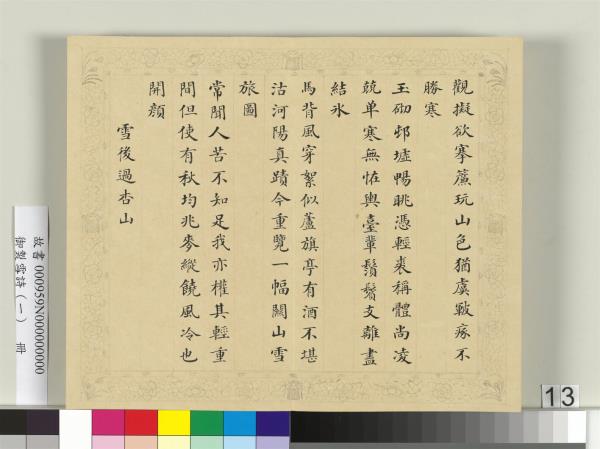 觀擬欲搴簾玩山色猶虞皸瘃不
勝寒
玉砌邨墟暢眺憑輕裘稱體尚凌
兢单寒無恠輿臺輩鬚鬢支離盡
結氷
馬背風穿絮似蘆旗亭有酒不堪
沽河陽真蹟今重覽一幅關山雪
旅圖
常聞人苦不知足我亦權其輕重
間但使有秋均兆麥縱饒風冷也
開顔
雪後過杏山
故書 000959N000000000
御製雪詩(一) 冊
13